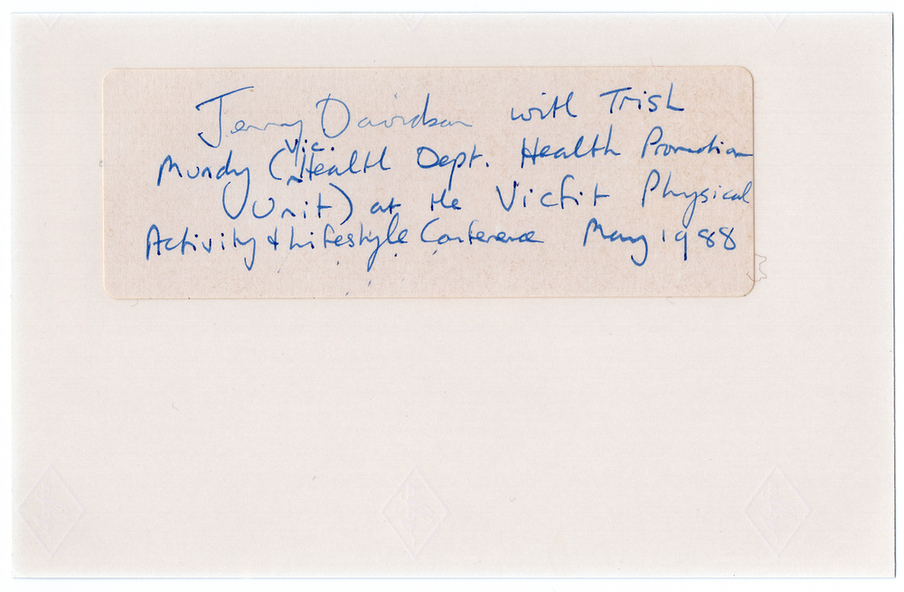 Jenny Davidson with Trish
Mundy (Vic. Health Dept. Health Promotion
Unit) at the Vicfit Physical
Activity & Lifestyle Conference May 1988